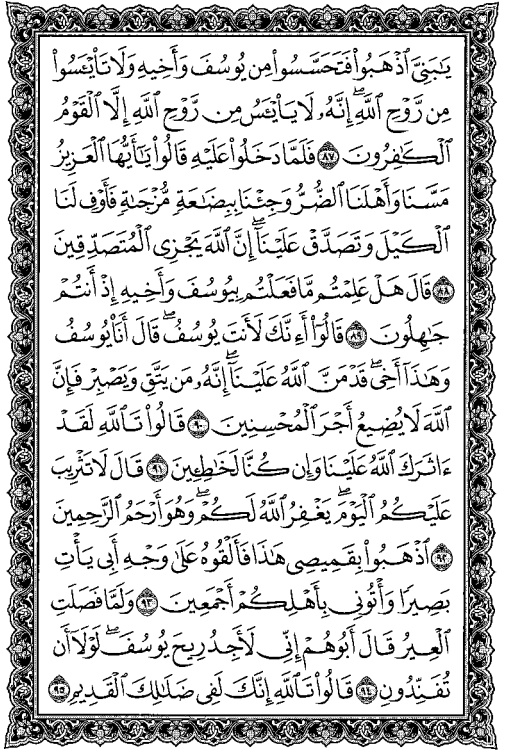 يَٰبَنِيَّ ٱذۡهَبُواْ فَتَحَسَّسُواْ مِن يُوسُفَ وَأَخِيهِ وَلَا تَاْيۡـَٔسُواْ
مِن رَّوۡحِ ٱللَّهِۖ إِنَّهُۥ لَا يَاْيۡـَٔسُ مِن رَّوۡحِ ٱللَّهِ إِلَّا ٱلۡقَوۡمُ
ٱلۡكَٰفِرُونَ ٨٧ فَلَمَّا دَخَلُواْ عَلَيۡهِ قَالُواْ يَٰٓأَيُّهَا ٱلۡعَزِيزُ
مَسَّنَا وَأَهۡلَنَا ٱلضُّرُّ وَجِئۡنَا بِبِضَٰعَةٖ مُّزۡجَىٰةٖ فَأَوۡفِ لَنَا
ٱلۡكَيۡلَ وَتَصَدَّقۡ عَلَيۡنَآۖ إِنَّ ٱللَّهَ يَجۡزِي ٱلۡمُتَصَدِّقِينَ
٨٨ قَالَ هَلۡ عَلِمۡتُم مَّا فَعَلۡتُم بِيُوسُفَ وَأَخِيهِ إِذۡ أَنتُمۡ
جَٰهِلُونَ ٨٩ قَالُوٓاْ أَءِنَّكَ لَأَنتَ يُوسُفُۖ قَالَ أَنَا۠ يُوسُفُ
وَهَٰذَآ أَخِيۖ قَدۡ مَنَّ ٱللَّهُ عَلَيۡنَآۖ إِنَّهُۥ مَن يَتَّقِ وَيَصۡبِرۡ فَإِنَّ
ٱللَّهَ لَا يُضِيعُ أَجۡرَ ٱلۡمُحۡسِنِينَ ٩٠ قَالُواْ تَٱللَّهِ لَقَدۡ
ءَاثَرَكَ ٱللَّهُ عَلَيۡنَا وَإِن كُنَّا لَخَٰطِـِٔينَ ٩١ قَالَ لَا تَثۡرِيبَ
عَلَيۡكُمُ ٱلۡيَوۡمَۖ يَغۡفِرُ ٱللَّهُ لَكُمۡۖ وَهُوَ أَرۡحَمُ ٱلرَّٰحِمِينَ
٩٢ ٱذۡهَبُواْ بِقَمِيصِي هَٰذَا فَأَلۡقُوهُ عَلَىٰ وَجۡهِ أَبِي يَأۡتِ
بَصِيرٗا وَأۡتُونِي بِأَهۡلِكُمۡ أَجۡمَعِينَ ٩٣ وَلَمَّا فَصَلَتِ
ٱلۡعِيرُ قَالَ أَبُوهُمۡ إِنِّي لَأَجِدُ رِيحَ يُوسُفَۖ لَوۡلَآ أَن
تُفَنِّدُونِ ٩٤ قَالُواْ تَٱللَّهِ إِنَّكَ لَفِي ضَلَٰلِكَ ٱلۡقَدِيمِ ٩٥